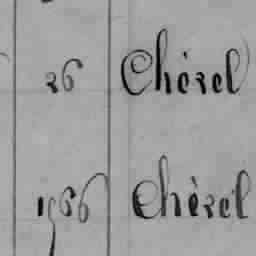 26 Chérel
1566 Chérel